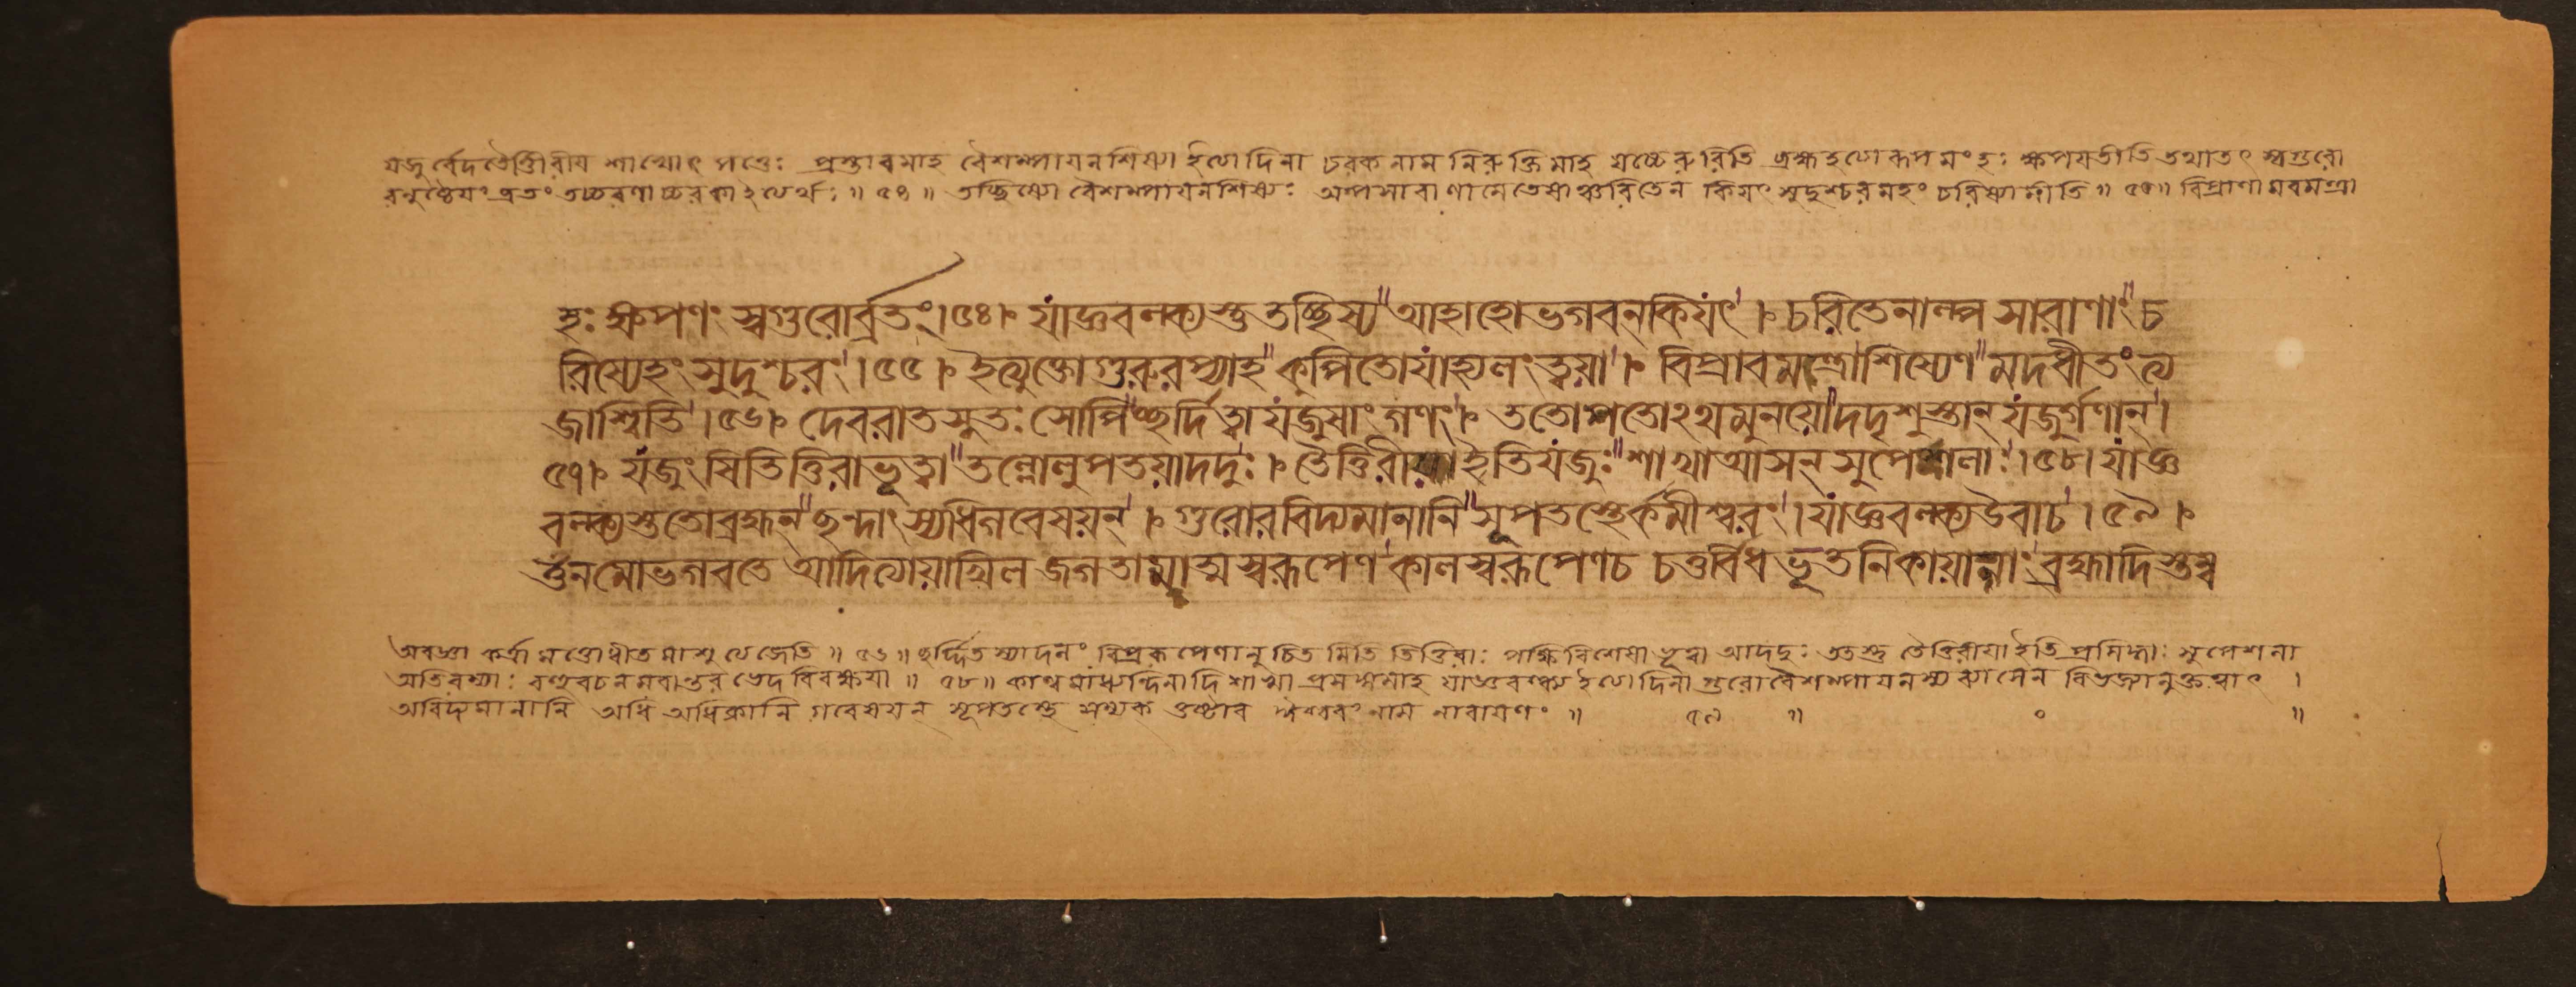 যজুর্বেদতৈত্তিরীয শাখোৎপত্তেঃ প্রস্তাবমাহ বৈশম্পাযনশিষ্যা ইত্যাদিনা চরকনামনিরুক্তিমাহ যচ্চেরুরিতি ব্রহ্মহত্যারূপমংহঃ ক্ষপযতীতি তথাতৎ স্বগুরো
রনুষ্ঠেযং ব্রতং তচ্চরণাচ্চরকা ইত্যর্থঃ ॥ ৫৪ ॥ তচ্ছিষ্যো বৈশম্পাযনশিষ্যঃ অল্পসারাণামেতেষাঞ্চরিতেন কিযৎ সুদুশ্চরমহং চরিষ্যামীতি ॥ ৫৫ ॥ বিপ্রাণামবমন্ত্রা
হঃ ক্ষপণং স্বগুরোর্ব্রতং । ৫৪ । যাজ্ঞবল্ক্যস্তু তচ্ছিষ্য আহাহো ভগবন্ কিযৎ । চরিতেনাল্প সারাণাং চ
রিষ্যেহং সুদুশ্চরং । ৫৫ । ইত্যুক্তো গুরুরপ্যাহ কুপিতো যাহ্যলং ত্বয়া । বিপ্রাবমন্ত্রা শিষ্যেণ মদধীতং ত্য
জাশ্বিতি । ৫৬ । দেবরাতসুতঃ সোপি চ্ছর্দিত্বা যজুষাং গণং । ততো গতোঽথ মুনয়ো দদৃশুস্তান্ যজুর্গণান্ ।
৫৭ । যজুংষি তিত্তিরা ভূত্বা তল্লোলুপতয়াদদুঃ । তৈত্তিরীয়া ইতি যজুঃ শাখা আসন্ সুপেশলাঃ । ৫৮ । যাজ্ঞ
বল্ক্যস্ততো ব্রহ্মন্ ছন্দাংস্যধিগবেষয়ন্ । গুরোরবিদ্যমানানি সূপতস্থের্কমীশ্বরং । যাজ্ঞবল্ক্য উবাচ । ৫৯ ।
ওঁ নমো ভগবতে আদিত্যায়াখিল জগতামাত্মস্বরূপেণ কালস্বরূপেণ চ চতুর্বিধ ভূতনিকায়ানাং ব্রহ্মাদিস্তম্ব
অবজ্ঞা কর্ত্রা মত্তোধীতমাশু ত্যজেতি ॥ ৫৬ ॥ ছর্দ্দিতস্যাদনং বিপ্ররূপেণানুচিতমিতি তিত্তিরাঃ পক্ষিবিশেষা ভূত্বা আদদুঃ ততস্তু তৈত্তিরীয়া ইতি প্রসিদ্ধাঃ সুপেশলা
অতিরম্যাঃ বহুবচনমবান্তর ভেদ বিবক্ষযা ॥ ৫৮ ॥ কাণ্বমাধ্যন্দিনাদি শাখা প্রসঙ্গমাহ যাজ্ঞবল্ক্য ইত্যাদিনা গুরোর্বৈশম্পাযনস্য ব্যাসেন বিভজ্যানুক্তত্বাৎ ।
অবিদ্যমানানি অধি অধিকানি গবেষযন্ সূপতস্থে সম্যক্ তুষ্টাব ঈশ্বরং নাম নারাযণং ॥ ৫৯ ॥ ০ ॥